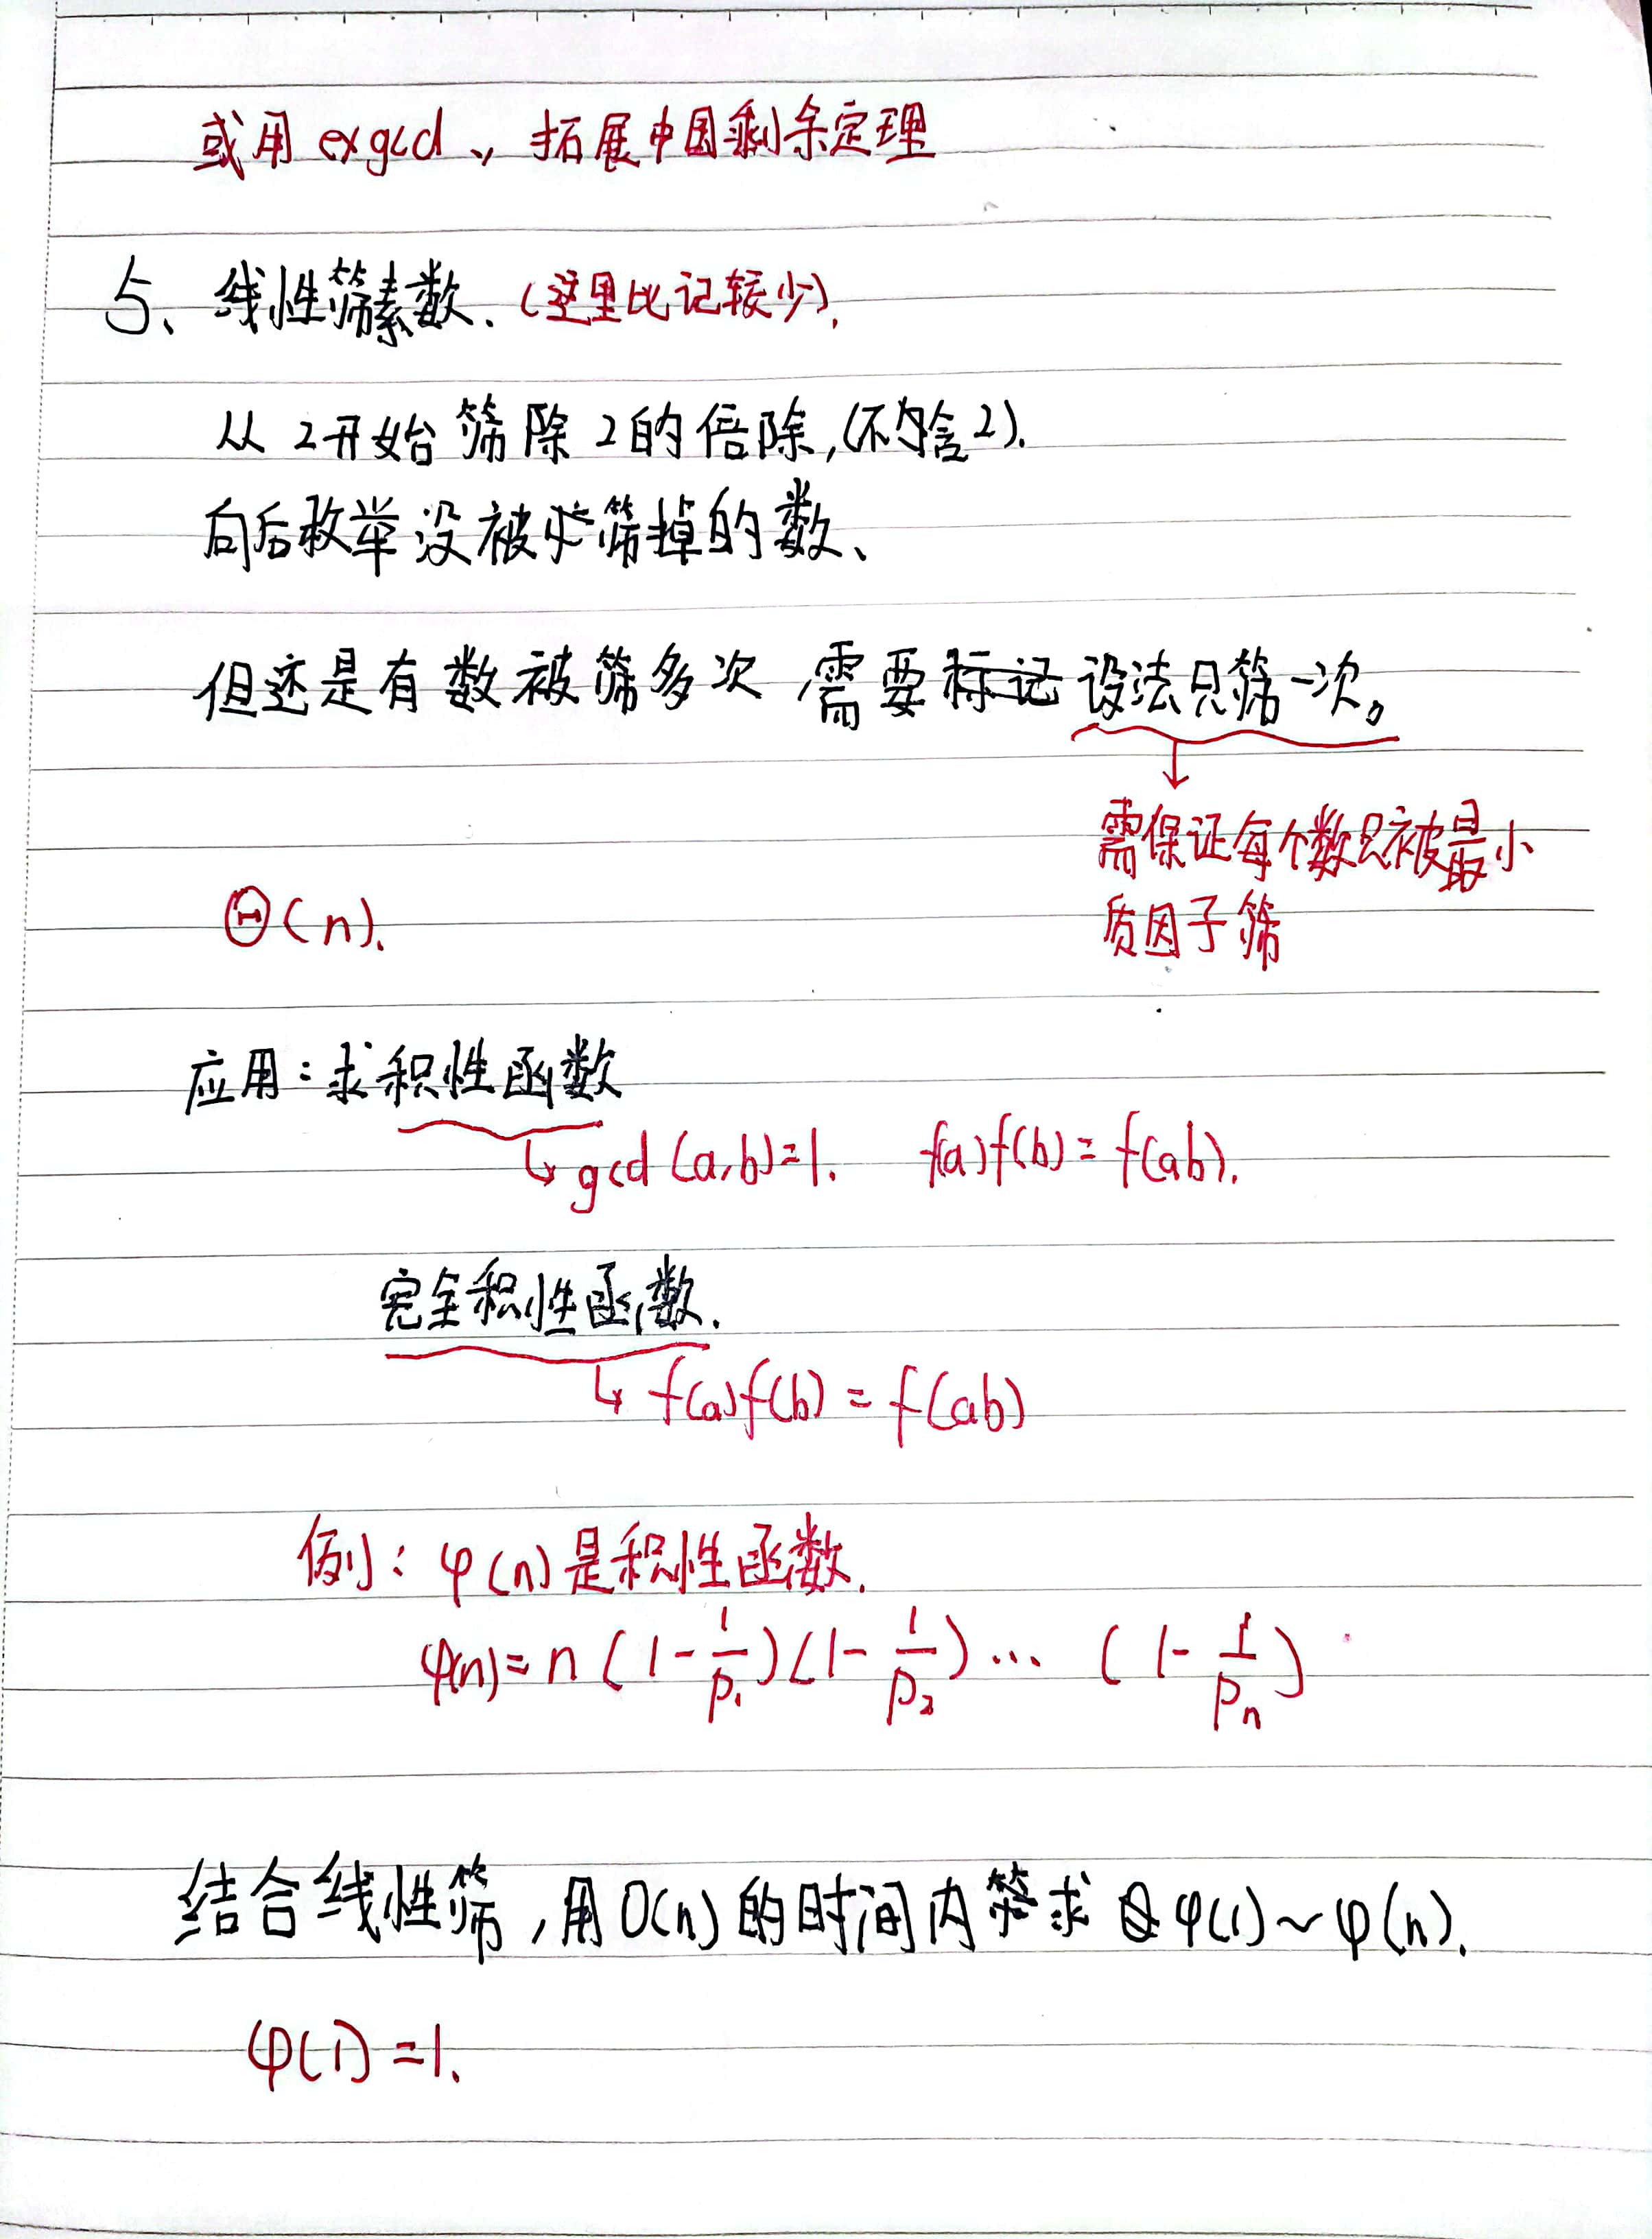 或用 exgcd、拓展中国剩余定理
5、线性筛素数、(这里比记较少).
从 2开始 筛除 2的倍除,(不含2).
向后枚举没被筛掉的数、
但还是有数被筛多次,需要标记 设法只筛一次。
需保证每个数只被最小
质因子筛
Θ(n).
应用:求积性函数
↳ gcd(a,b)=1. f(a)f(b)=f(ab).
完全积性函数.
↳ f(a)f(b)=f(ab)
例:φ(n)是积性函数.
φ(n)=n(1-1/p₁)(1-1/p₂)…(1-1/pₙ)
结合线性筛,用O(n)的时间内求φ(1)~φ(n).
φ(1)=1.